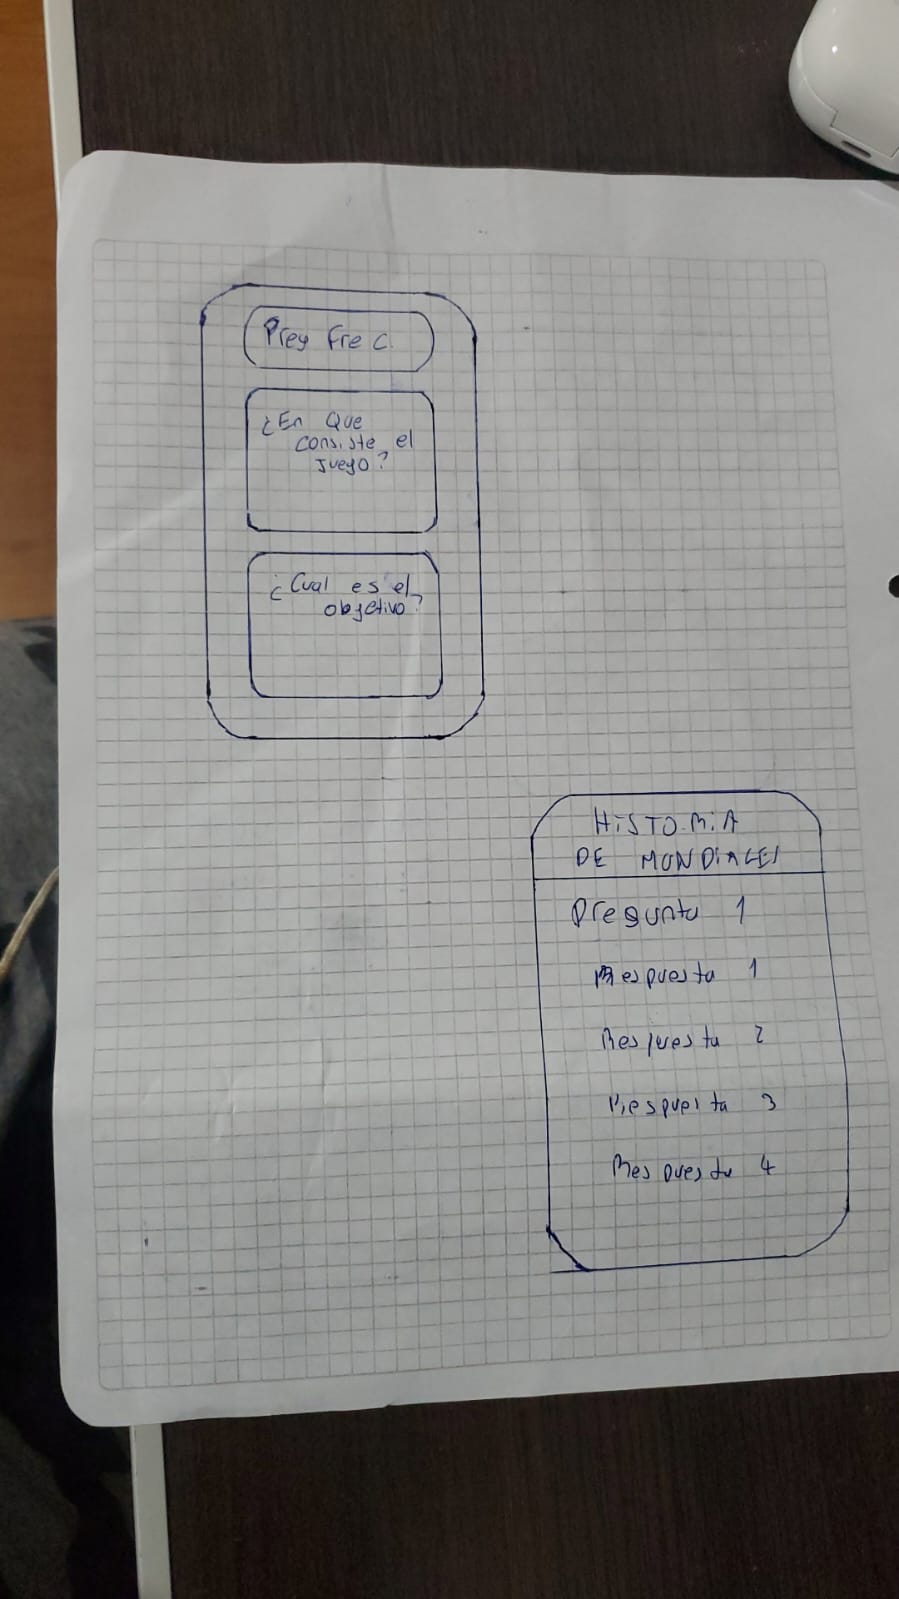 Preg Frec.
¿En Que
consiste el
juego?
¿Cual es el
objetivo?
HiSTORiA
DE MUNDiALES
Pregunta 1
Respuesta 1
Respuesta 2
Respuesta 3
Respuesta 4